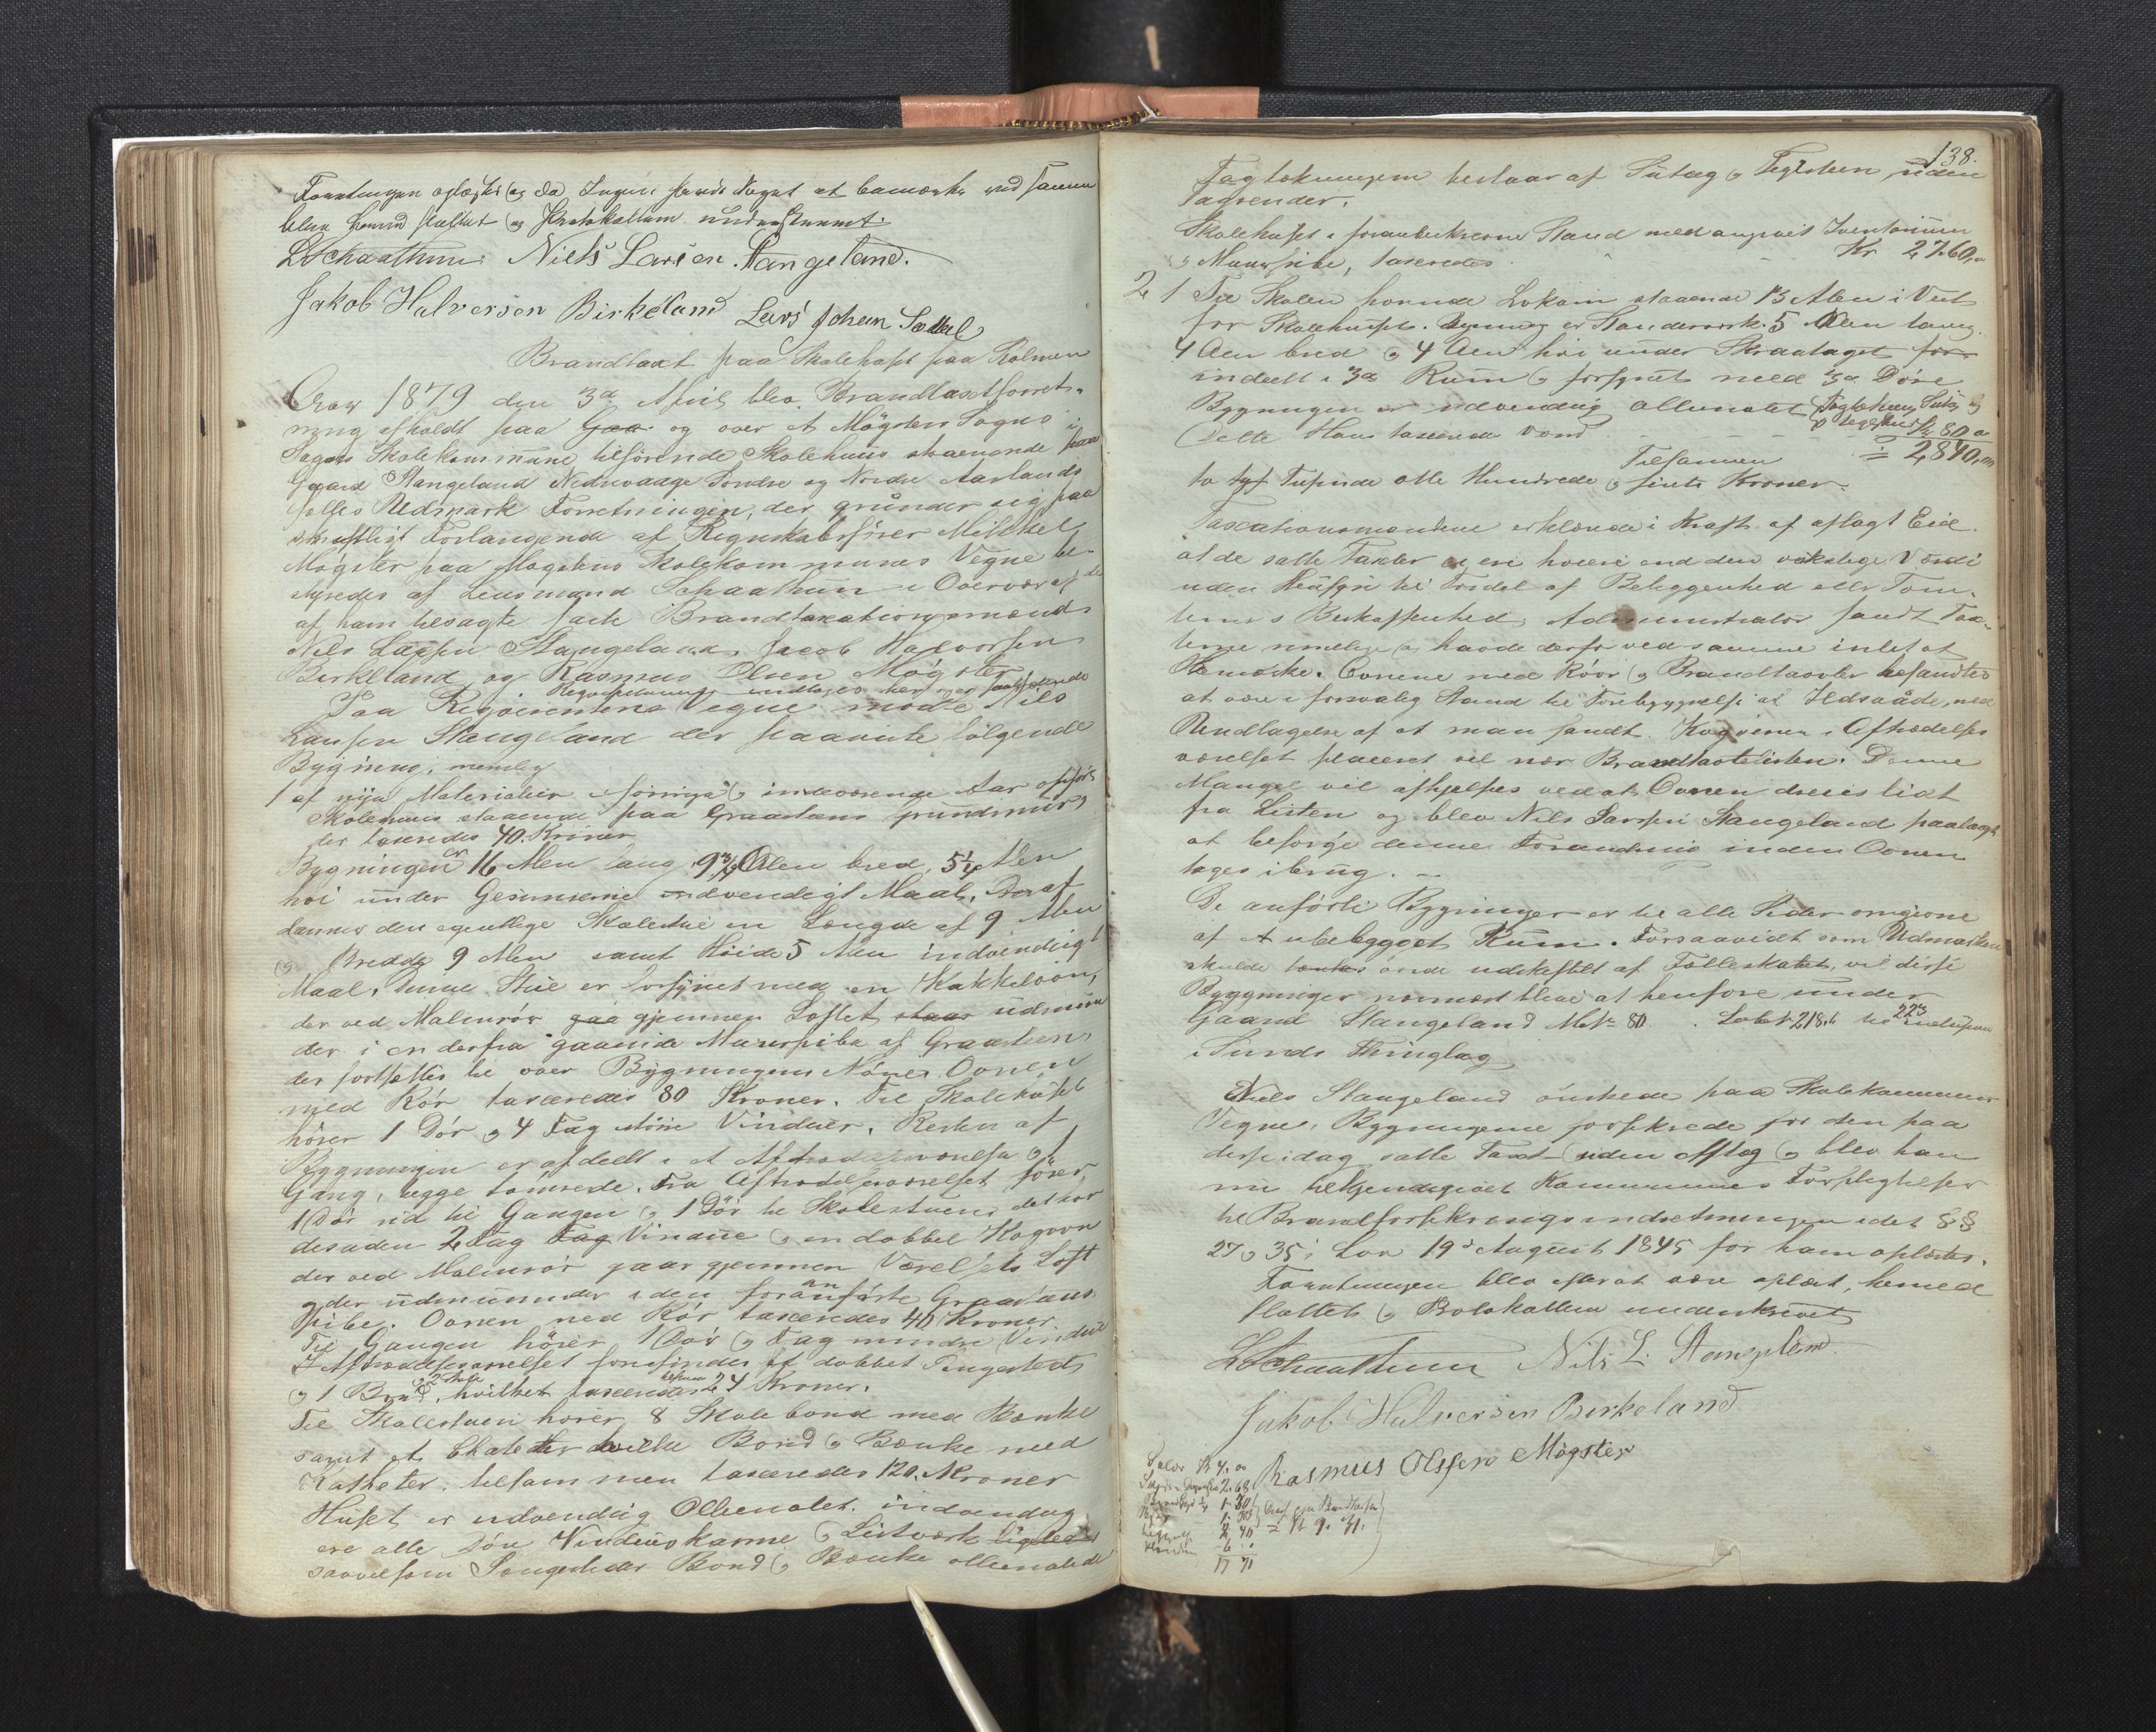 Forretningen oplæstes og da Ingen fandt Noget at bemærke ved samme
blev hermed sluttet og Protokollen underskrevet.
LSchaathun Niels Larsen Stangeland.
Jakob Halversen Birkeland Lars Johan Sættel
Brandtaxt paa Skolehuset paa Skolmen
Aar 1879 den 3die April blev Brandtaxtforret-
ning afholdt paa Gaa og over et Møgster Sogns i
Sogns Skolekommune tilhørende Skolehuus staaende paa
Gaard Stangeland Nedrevaage Søndre og Nordre Aarlands
fælles Udmark Forretningen, der grunder sig paa
skriftligt Forlangende af Regnskabsfører Mikkel
Møgster paa Møgsters Skolekommunes Vegne be-
styredes af Lensmand Schaathun i Overvær af de
af ham besagte faste Brandtaxationsmænd
Nils Larsen Stangeland, Jacob Halvorsen
Birkeland og Rasmus Olsen Møgster
Paa Reqvirentens Vegne mødte Nils
Larsen Stangeland der paaviste følgende
Bygning, nemlig
1 af nye Materialier i forrige og indeværende Aar opført
Skolehuus staaende paa Graastens Grundmur,
der taxeredes 40 Kroner
Bygningen er 16 Alen lang 9¾ Alen bred, 5¼ Alen
høi under Gesimserne udvendigt Maal. Deraf
danner den egentlige Skolestue en Længde af 9 Alen
og Bredde 9 Alen samt Høide 5 Alen indvendigt
Maal. Denne Stue er forsynet med en Kakkelovn,
der ved Malmrør gaa gjennem Loftet staar udmun
der i en derfra gaaende Muurpibe af Graasten,
der fortsættes til over Bygningens Møne. Ovnen
med Rør taxeredes 80 Kroner. Til Skolehuset
hører 1 Dør og 4 Fag større Vinduer. Resten af
Bygningen er afdeelt i et Aftrædelsesværelse og 1
Gang, begge tømrede. Fra Aftrædelsesværelset fører
1 Dør ud til Gangen og 1 Dør til Skolestuen, det har
desuden 2 Fag Fag Vindue og en dobbel Kogovn
der ved Malmrør gaar gjennem Værelsets Loft
og der udmunder i den foranførte Graastens
pibe. Ovnen med Rør taxeredes 40 Kroner
Til Gangen hører 1 Dør og Fag mindre Vindue
I Aftrædelsesværelset forefindes et dobbet Sengested
og 1 Bord, hvilket taxeredes 24 Kroner.
Til Skolestuen hører 8 Skolebord med Bænke
samt et Katheder hvilke Bord og Bænke med
Katheter, tilsammen taxeredes 120 Kroner
Huset er udvendig Oliemalet. indvendig
ere alle Døre Vindueskarme og Listværk ligeledes
saavelsom Sengesteder Bord og Bænke oliemalede
138.
Tagtækningen bestaar af Sutag og Teglsten uden
Tagrender.
Skolehuset i foranbeskrevne Stand med angivet Inventarium
og Muurpibe, taxeredes - - - Kr 2,760,00
2 1 Til Skolen hørende Lokum staaende 13 Alen i Vest
for Skolehuset. Bygning er Standerverk. 5 Alen lang
4 Alen bred og 4 Alen høi under Skraataget for
indeelt i 3de Rum og forsynet med 3de Døre
Bygningen er udvendig oliemalet Tagtækning Sutag og
Dette Huus taxeredes værd - - - Kr 80 00
Tilsammen = 2,840,00
to tyf Tusinde otte Hundrede og firti Kroner.
Taxationsmændene erklærede i Kraft af aflagt Eed
at de satte Taxter ei ere høiere end den virkelige Værdi
uden Hensyn til Fordel af Beliggenhed eller Tom-
ternes Beskaffenhed. Administrator fandt Tax-
terne rimelige og havde derfor ved samme intet at
bemærke. Ovnene med Rør og Brandtavler befandtes
at være i forsvarlig Stand til Forebyggelse af Ildsvaade, med
Undtagelse af at man fandt Kogovnen i Aftrædelses
værelset placeret vel nær Brandtavlelisten. Denne
Mangel vil afhjelpes ved at Ovnen dreies lidt
fra Listen og blev Nils Larsen Stangeland paalagt
at besørge denne Forandring inden Ovnen
tages i brug. -
De anførte Bygninger er til alle Sider omgivne
af et ubebygget Rum. Forsaavidt som Udmarken
skulde tænkes ønde udskiftet af Fælleskabet, vil disse
Bygninger nærmest blive at henføre under
Gaard Stangeland Mtr 80. Løbe№ 218b til 223 inclusive
i Sunds Thinglag
Niels Stangeland ønskede paa Skolekommunens
Vegne, Bygningerne forsikrede for den paa
disse idag satte Taxt uden Afslag og blev han
nu bekjendtgjort Kommunens Forpligtelser
til Brandforsikringsindretningen idet §§
27 og 35 i Lov 19de August 1845 for ham oplæstes.
Forretningen blev efter at være oplæst, hermed
sluttet og Protokollen underskrevet
LSchaathun Nils L. Stangeland.
Jakob Halversen Birkeland
Rasmus Olssen Møgster
17 71